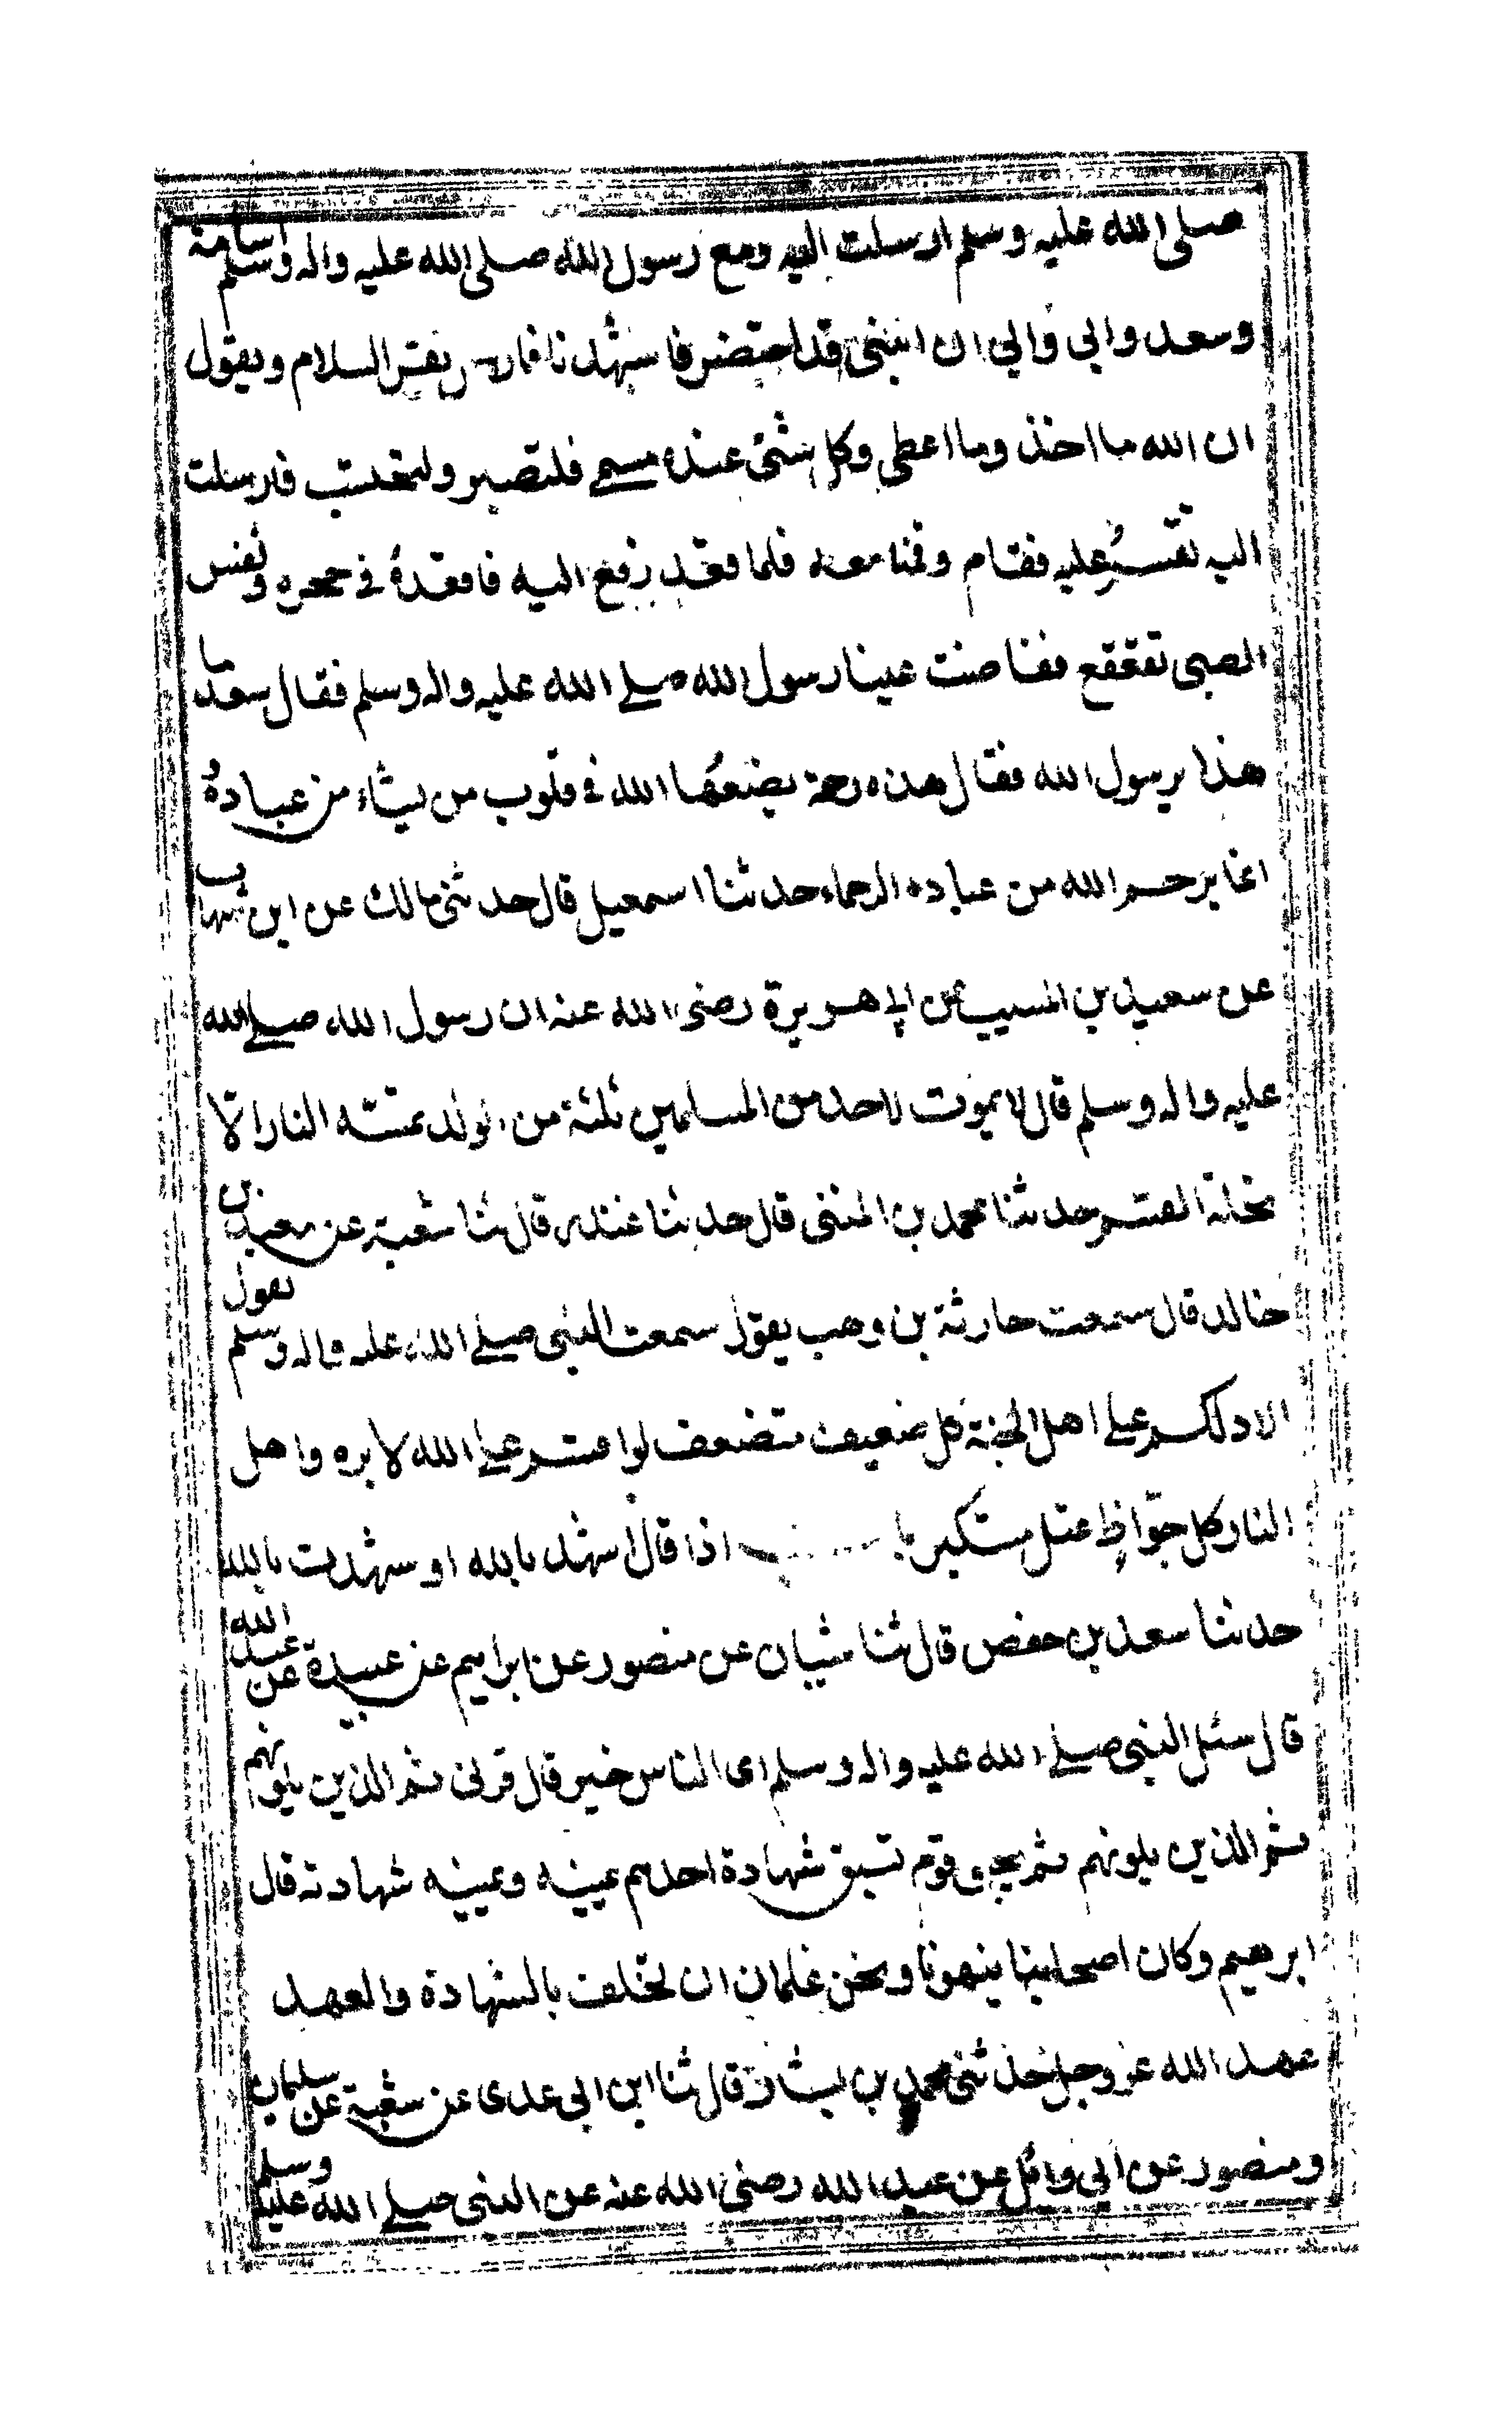 صلى الله عليه وسلم ارسلت اليه ومع رسول الله صلى الله عليه واله وسلم اسامة
وسعد وابي وابي ان ابني قد احتضر فاشهدنا فارسل يقرء السلام ويقول
ان الله ما اخذ وما اعطى وكل شئ عنده مسمى فلتصبر ولتحتسب فارسلت
اليه تقسم عليه فقام وقمنا معه فلما قعد رفع اليه فاقعده في حجره ونفس
الصبى تقعقع ففاضت عينا رسول الله صلى الله عليه واله وسلم فقال سعد ما
هذا يرسول الله فقال هذه رحمة يضعها الله في قلوب من يشاء من عباده و
انما يرحم الله من عباده الرحماء حدثنا اسمعيل قال حدثنى مالك عن ابن شهاب
عن سعيد بن المسيب عن ابي هريرة رضى الله عنه ان رسول الله صلى الله
عليه واله وسلم قال لا يموت لاحد من المسلمين ثلثة من الولد تمسه النار الا
تحلة القسم حدثنا محمد بن المثنى قال حدثنا غندر قال ثنا شعبة عن معبد بن
خالد قال سمعت حارثة بن وهب يقول سمعت النبى صلى الله عليه واله وسلم يقول
الا دلكم على اهل الجنة كل ضعيف متضعف لو اقسم على الله لابره واهل
النار كل جواظ عتل مستكبر با اذا قال اشهد بالله او شهدت بالله
حدثنا سعد بن حفص قال ثنا شيبان عن منصور عن ابراهيم عن عبيدة عن عبد الله
قال سئل النبى صلى الله عليه واله وسلم اى الناس خير قال قرنى ثم الذين يلونهم
ثم الذين يلونهم ثم يجئ قوم تسبق شهادة احدهم يمينه ويمينه شهادته قال
ابرهيم وكان اصحابنا ينهونا ونحن غلمان ان نحلف بالشهادة والعهد
عهد الله عز وجل حدثنى محمد بن بشار قال ثنا ابن ابى عدى عن شعبة عن سليمان
ومنصور عن ابي وائل عن عبد الله رضى الله عنه عن النبى صلى الله عليه وسلم